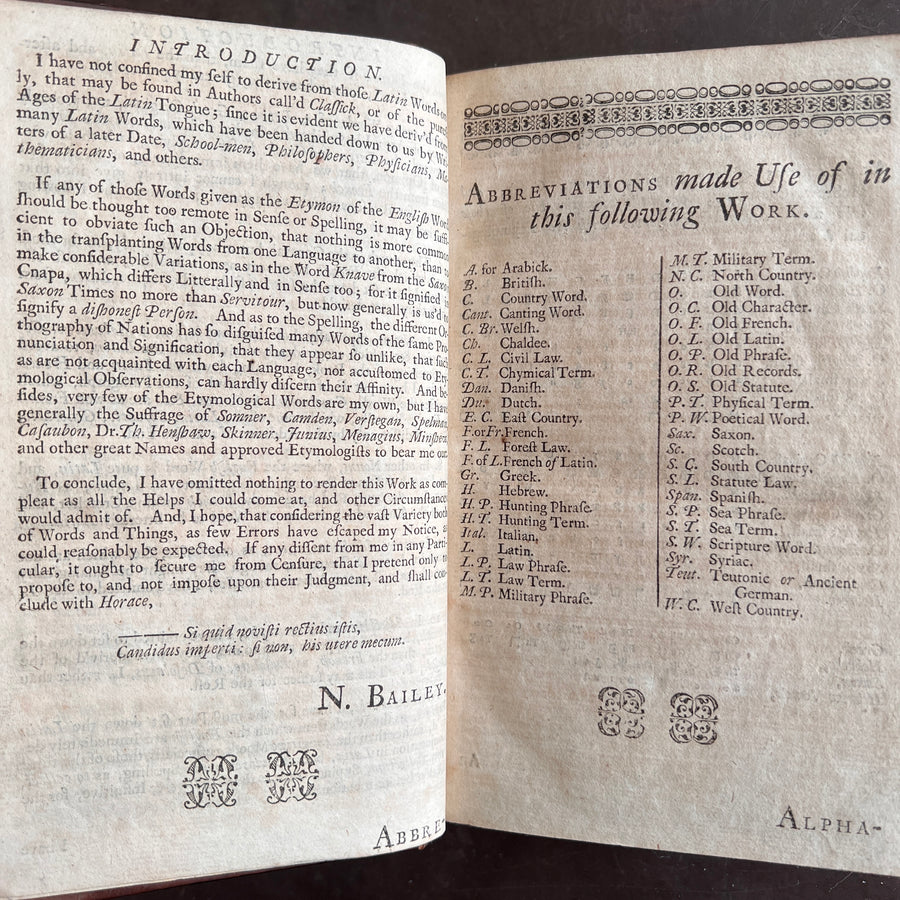 INTRODUCTION.
I have not confined my ſelf to derive from thoſe Latin Words on-
ly, that may be found in Authors call'd Claſſick, or of the pureſt
Ages of the Latin Tongue; ſince it is evident we have deriv'd from
many Latin Words, which have been handed down to us by Wri-
ters of a later Date, School-men, Philoſophers, Phyſicians, Ma-
thematicians, and others.
If any of thoſe Words given as the Etymon of the Engliſh Word
ſhould be thought too remote in Senſe or Spelling, it may be ſuffi-
cient to obviate ſuch an Objection, that nothing is more common
in the tranſplanting Words from one Language to another, than to
make conſiderable Variations, as in the Word Knave from the Saxon
Cnapa, which differs Litterally and in Senſe too; for it ſignified in
Saxon Times no more than Servitour, but now generally is us'd to
ſignify a diſhoneſt Perſon. And as to the Spelling, the different Or-
thography of Nations has ſo diſguiſed many Words of the ſame Pro-
nunciation and Signification, that they appear ſo unlike, that ſuch
as are not acquainted with each Language, nor accuſtomed to Ety-
mological Obſervations, can hardly diſcern their Affinity. And be-
ſides, very few of the Etymological Words are my own, but I have
generally the Suffrage of Somner, Camden, Verſtegan, Spelman,
Caſaubon, Dr. Th. Henſhaw, Skinner, Junius, Menagius, Minſhew
and other great Names and approved Etymologiſts to bear me out.
To conclude, I have omitted nothing to render this Work as com-
pleat as all the Helps I could come at, and other Circumſtances
would admit of. And, I hope, that conſidering the vaſt Variety both
of Words and Things, as few Errors have eſcaped my Notice, as
could reaſonably be expected. If any diſſent from me in any Parti-
cular, it ought to ſecure me from Cenſure, that I pretend only to
propoſe to, and not impoſe upon their Judgment, and ſhall con-
clude with Horace,
——— Si quid noviſti rectius iſtis,
Candidus imperti: ſi non, his utere mecum.
N. BAILEY.
ABBRE-
ABBREVIATIONS made Uſe of in
this following WORK.
A. for Arabick.
B. Britiſh.
C. Country Word.
Cant. Canting Word.
C. Br. Welſh.
Ch. Chaldee.
C. L. Civil Law.
C. T. Chymical Term.
Dan. Daniſh.
Du. Dutch.
E. C. Eaſt Country.
F. or Fr. French.
F. L. Foreſt Law.
F. of L. French of Latin.
Gr. Greek.
H. Hebrew.
H. P. Hunting Phraſe.
H. T. Hunting Term.
Ital. Italian,
L. Latin.
L. P. Law Phraſe.
L. T. Law Term.
M. P. Military Phraſe.
M. T. Military Term.
N. C. North Country.
O. Old Word.
O. C. Old Character.
O. F. Old French.
O. L. Old Latin.
O. P. Old Phraſe.
O. R. Old Records.
O. S. Old Statute.
P. T. Phyſical Term.
P. W. Poetical Word.
Sax. Saxon.
Sc. Scotch.
S. C. South Country.
S. L. Statute Law.
Span. Spaniſh.
S. P. Sea Phraſe.
S. T. Sea Term.
S. W. Scripture Word.
Syr. Syriac.
Teut. Teutonic or Ancient
German.
W. C. Weſt Country.
ALPHA-